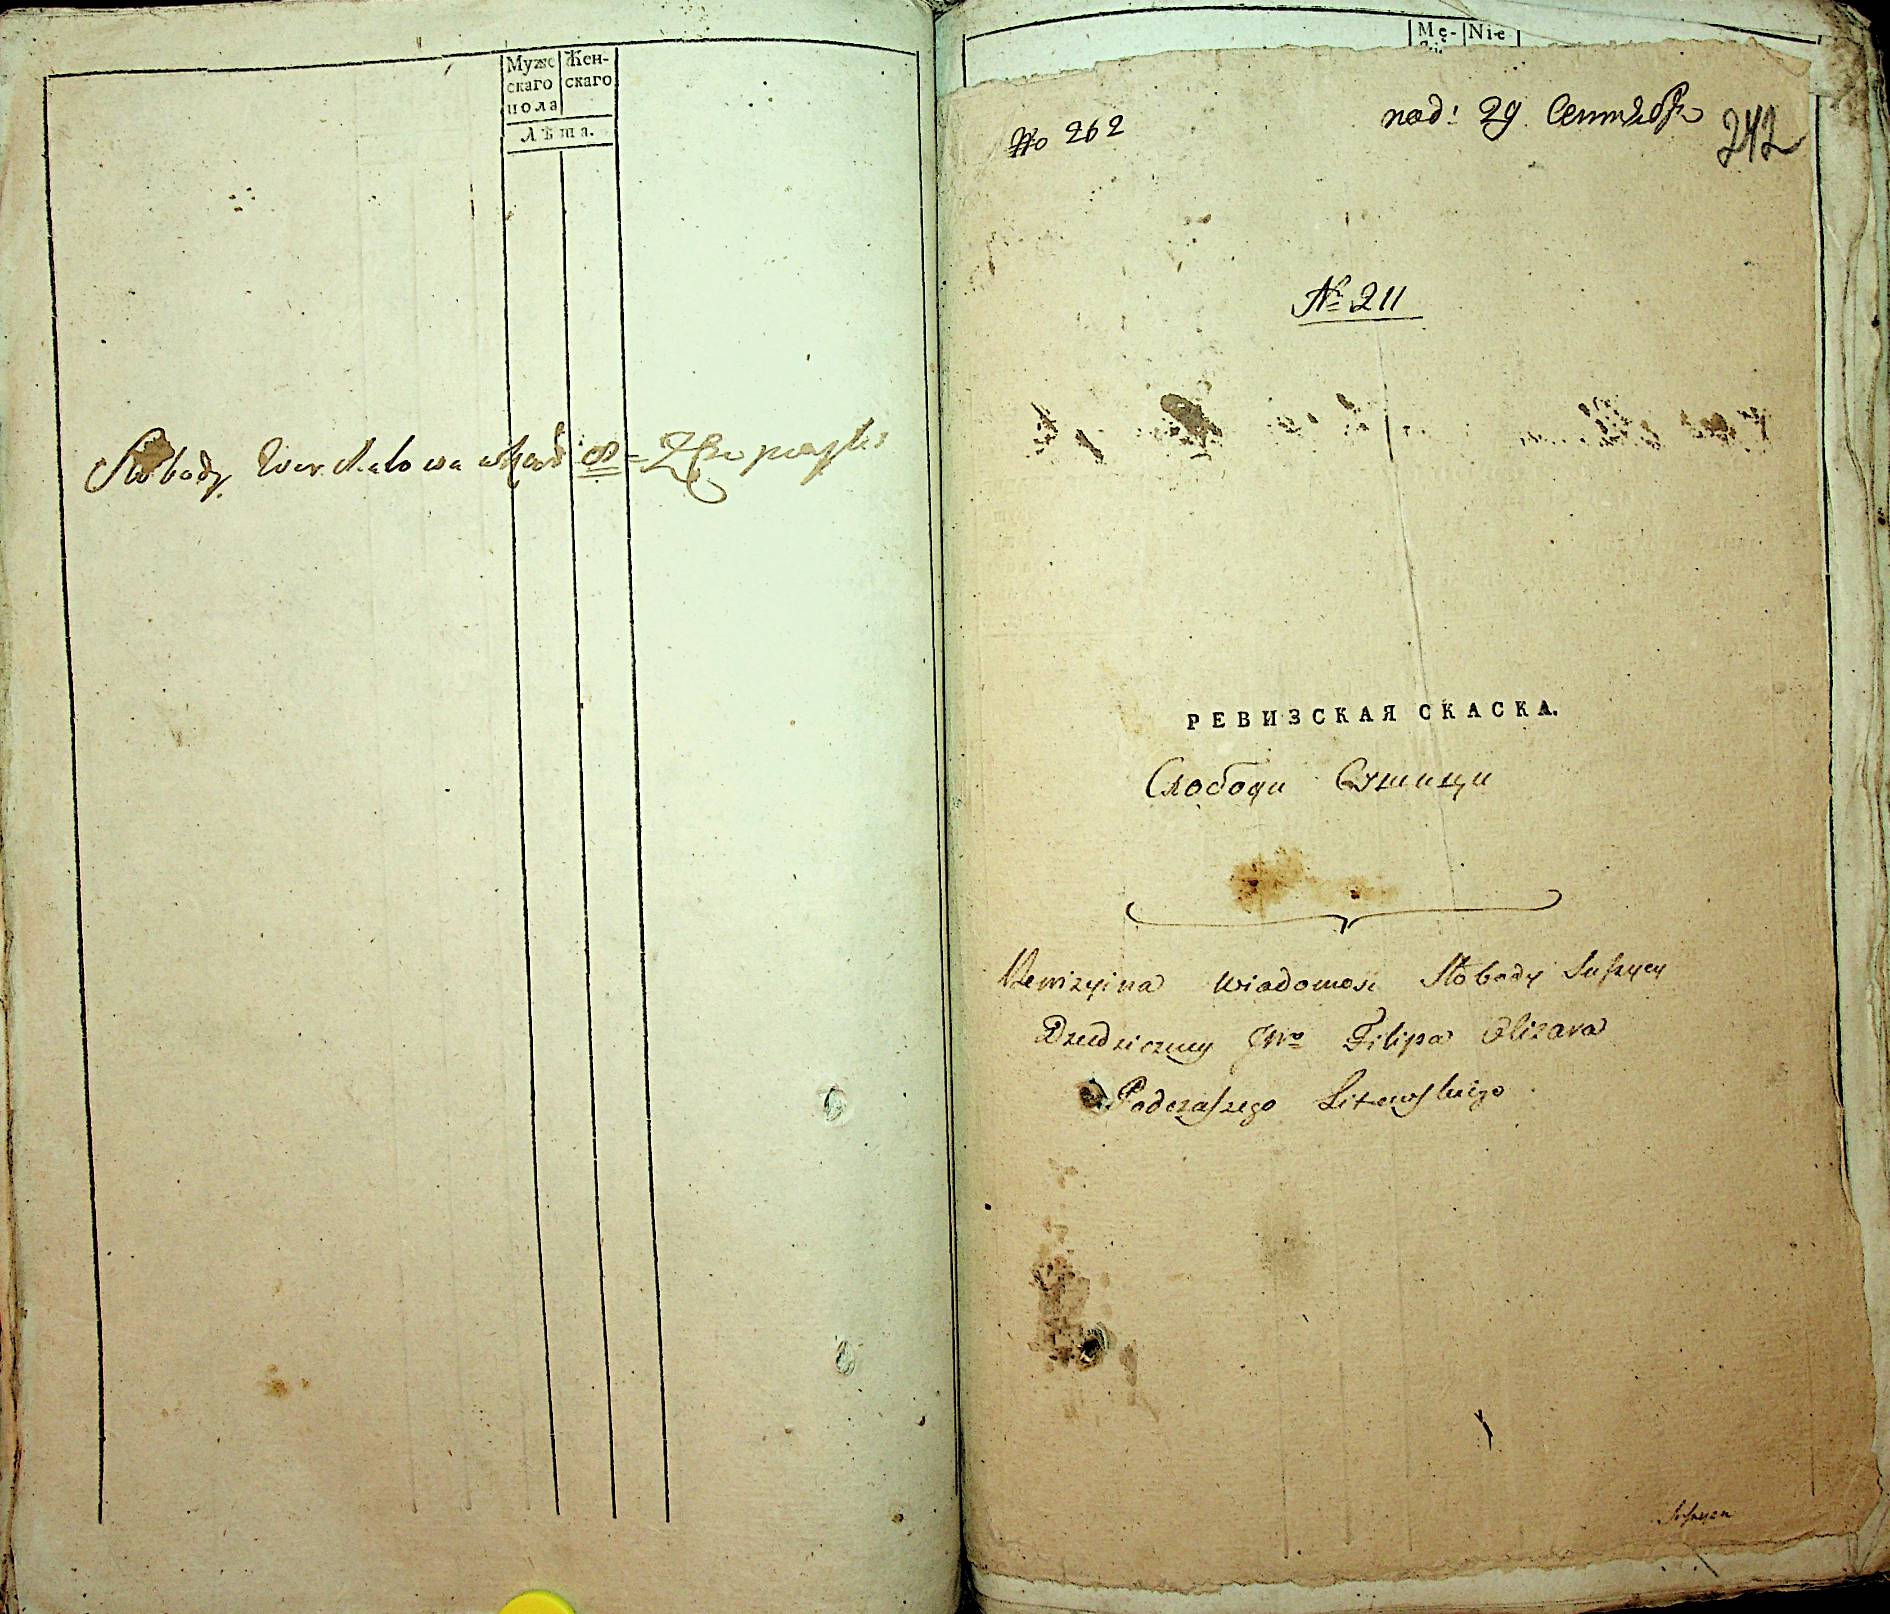 Муже Жен-
скаго скаго
пола
Лѣта.
Słobody
Mę- Nie
No 262
под: 29 Сентября
242
№ 211
РЕВИЗСКАЯ СКАСКА.
Слободи Сушици
Rewizyina Wiadomosc Słobody Suszycy
Dziedziczney JWo Filipa Olizara
Podczaszego Litewskiego
Suszyca